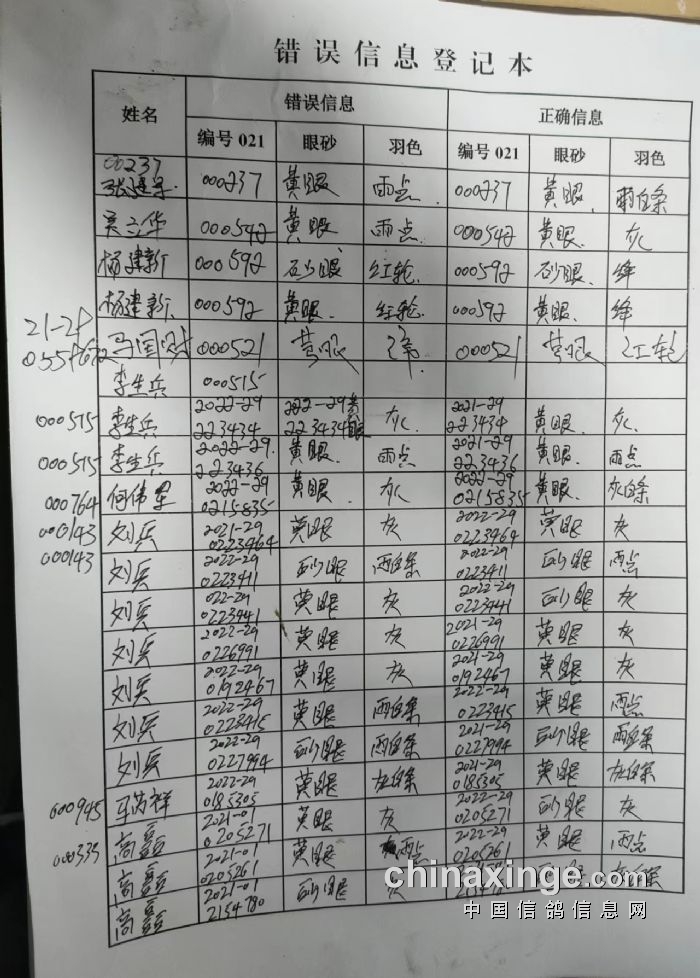 错误信息登记本
姓名 错误信息 正确信息
编号 021 眼砂 羽色 编号 021 眼砂 羽色
00237
000237 黄眼 雨点 000237 黄眼 雨白条
吴立华 000542 黄眼 雨点 000542 黄眼 灰
杨建新 000592 砂眼 红轮 000592 砂眼 绛
杨建新 000592 黄眼 红轮 000592 黄眼 绛
21-29
000521 黄眼 绛 000521 黄眼 红轮
李生兵 000515
000515 李生兵 2022-29 223434 2022-29 223434 黄眼 灰 2021-29 223434 黄眼 灰
000515 李生兵 2022-29 223436 黄眼 雨点 2021-29 223436 黄眼 雨点
000764 何伟星 2022-29 0215835 黄眼 灰 2022-29 0215835 黄眼 灰白条
000143 刘兵 2021-29 0223464 黄眼 灰 2022-29 0223464 黄眼 灰
000143 刘兵 2022-29 0223411 砂眼 雨白条 2022-29 0223411 砂眼 雨点
刘兵 022-29 0223441 黄眼 灰 2022-29 0223441 砂眼 灰
刘兵 2022-29 0226991 黄眼 灰 2021-29 0226991 黄眼 灰
刘兵 2022-29 0192467 黄眼 灰 2021-29 0192467 黄眼 灰
刘兵 2022-29 0223415 黄眼 雨白条 2022-29 0223415 黄眼 雨点
刘兵 2022-29 0227994 砂眼 雨白条 2021-29 0227994 砂眼 雨白条
000945 2022-29 0185305 黄眼 灰白条 2021-29 0185305 黄眼 灰白条
000335 高磊 2021-01 0205271 黄眼 灰 2022-29 0205271 砂眼 灰
高磊 2021-01 0205261 黄眼 雨点 2022-29 0205261 黄眼 雨点
高磊 2021-01 2154780 砂眼 灰
chinaxinge.com
中国信鸽信息网